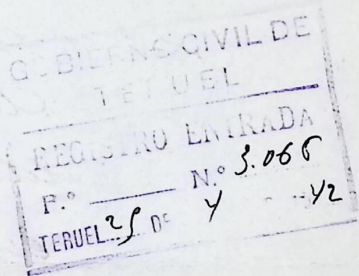 GOBIERNO CIVIL DE
TERUEL
REGISTRO ENTRADA
F.º N.º 3.066
TERUEL 29 DE 4 42